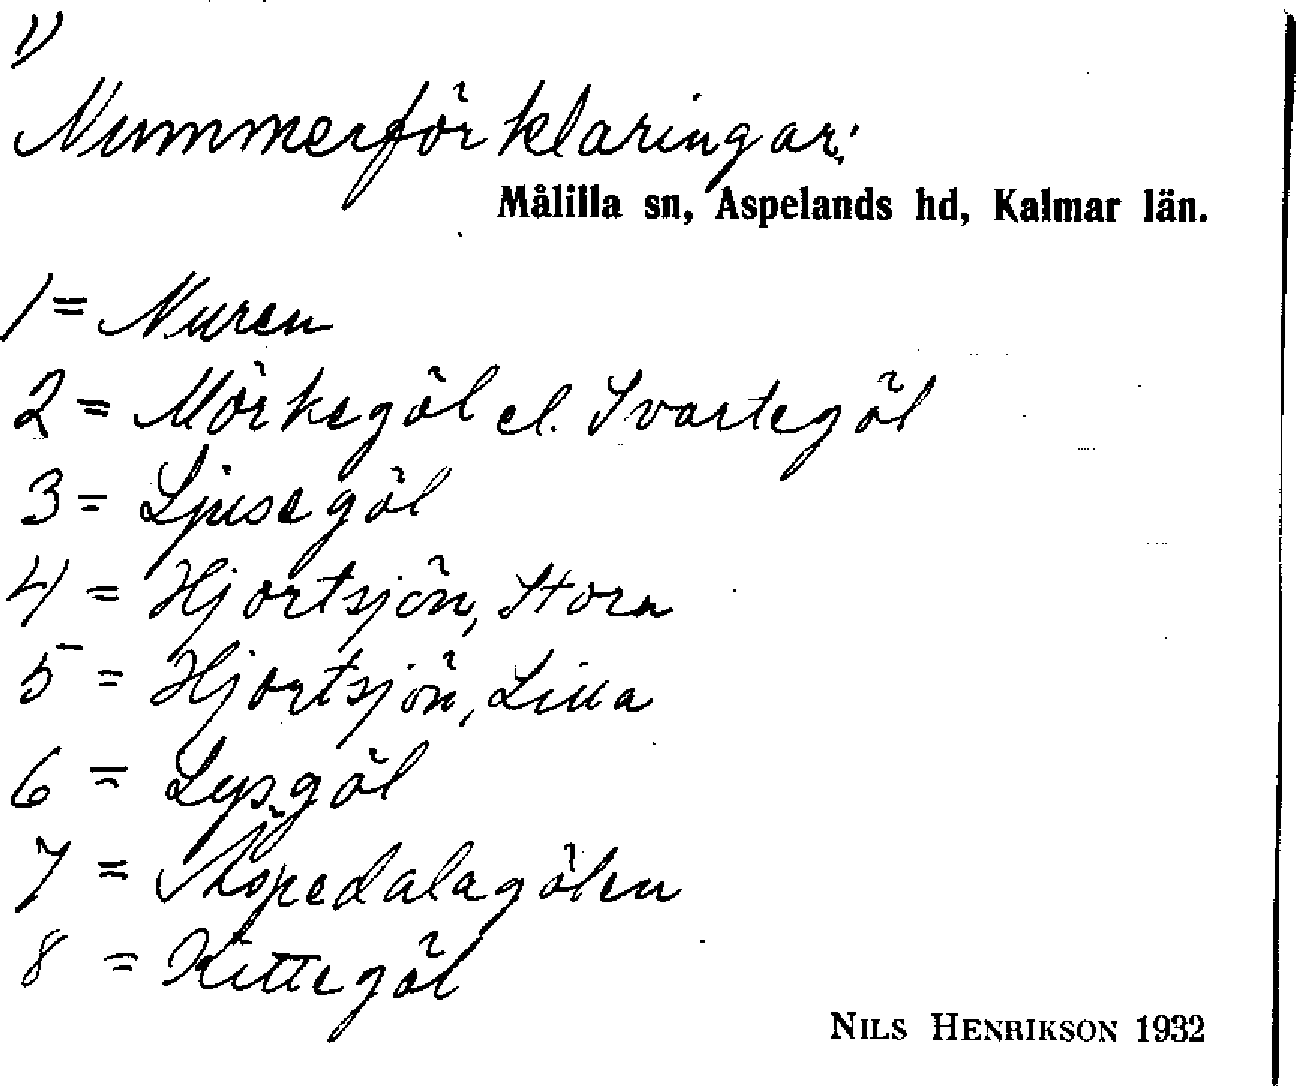 1)
Nummerförklaringar:
Målilla sn, Aspelands hd, Kalmar län.
1 = Nuren
2 = Mörkegöl el. Svartegöl
3 = Ljusegöl
4 = Hjortsjön, Stora
5 = Hjortsjön, Lilla
6 = Lysgöl
7 = Äspedalagölen
8 = Kittegöl
NILS HENRIKSON 1932